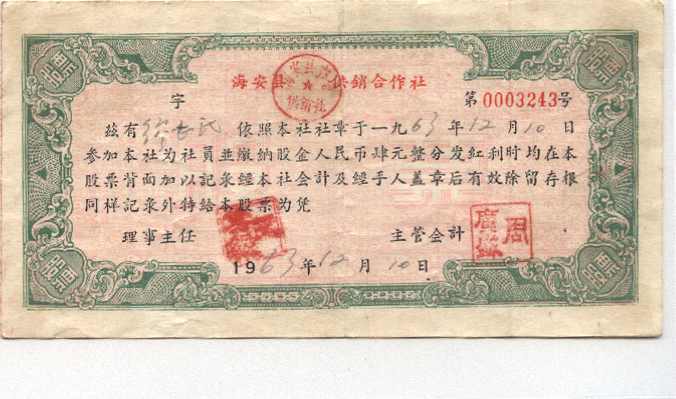 股票 股票
海安县 供销合作社
供销社
字 第0003243号
兹有 依照本社社章于一九63年12月10日
参加本社为社员並缴纳股金人民币肆元整分发红利时均在本
股票背面加以记彔经本社会计及经手人盖章后有效除留存根
同样记彔外特给本股票为凭
理事主任 主管会计
周
1963年12月10日
股票 股票